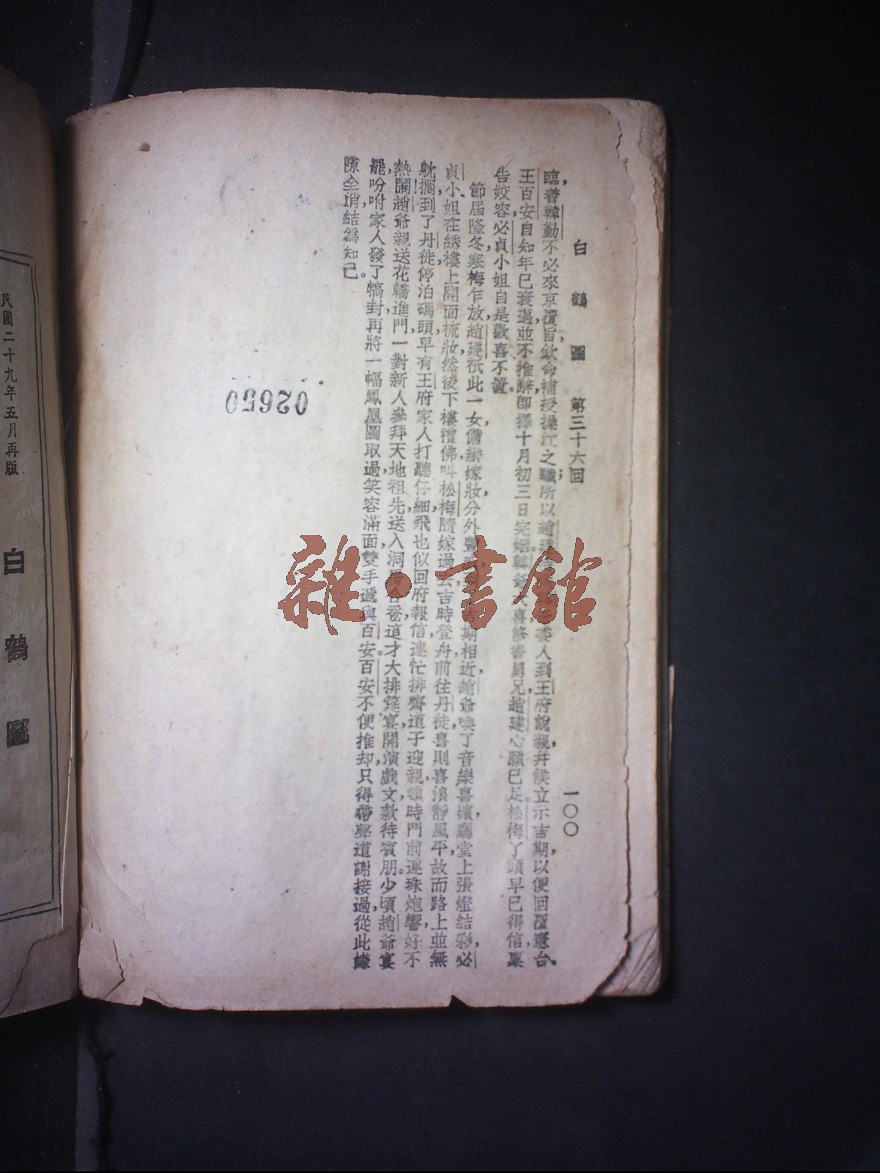 白鶴圖 第三十六回 一〇〇
臨着韓勤不必來京覆旨欽命補授操江之職所以趙 委人到王府說親幷候立示吉期以便回覆憲台。
王百安自知年已衰邁並不推辭卽擇十月初三日完姻韓爺大喜修書舅兄趙建心願已足松梅丫頭早已得信稟
告姣容必貞小姐自是歡喜不置。
節屆隆冬寒梅乍放趙建祇此一女備辦嫁妝分外 期相近趙爺喚了音樂喜嬪廳堂上張燈結彩必
貞小姐在綉樓上開面梳妝然後下樓禮佛叫松梅隨嫁過去吉時登舟前往丹徒喜則喜浪靜風平故而路上並無
躭擱到了丹徒停泊碼頭早有王府家人打聽仔細飛也似回府報信連忙排齊道子迎親頓時門前連珠炮響好不
熱鬧趙爺親送花轎進門一對新人參拜天地祖先送入洞房合卺這才大排筵宴開演戲文欵待賓朋少頃趙爺宴
罷吩咐家人發了犒封再將一幅鳳凰圖取過笑容滿面雙手遞與百安百安不便推却只得帶 道謝接過從此嫌
隙全消結爲知己。
02650
民國二十九年五月再版
白鶴圖
雜·書館